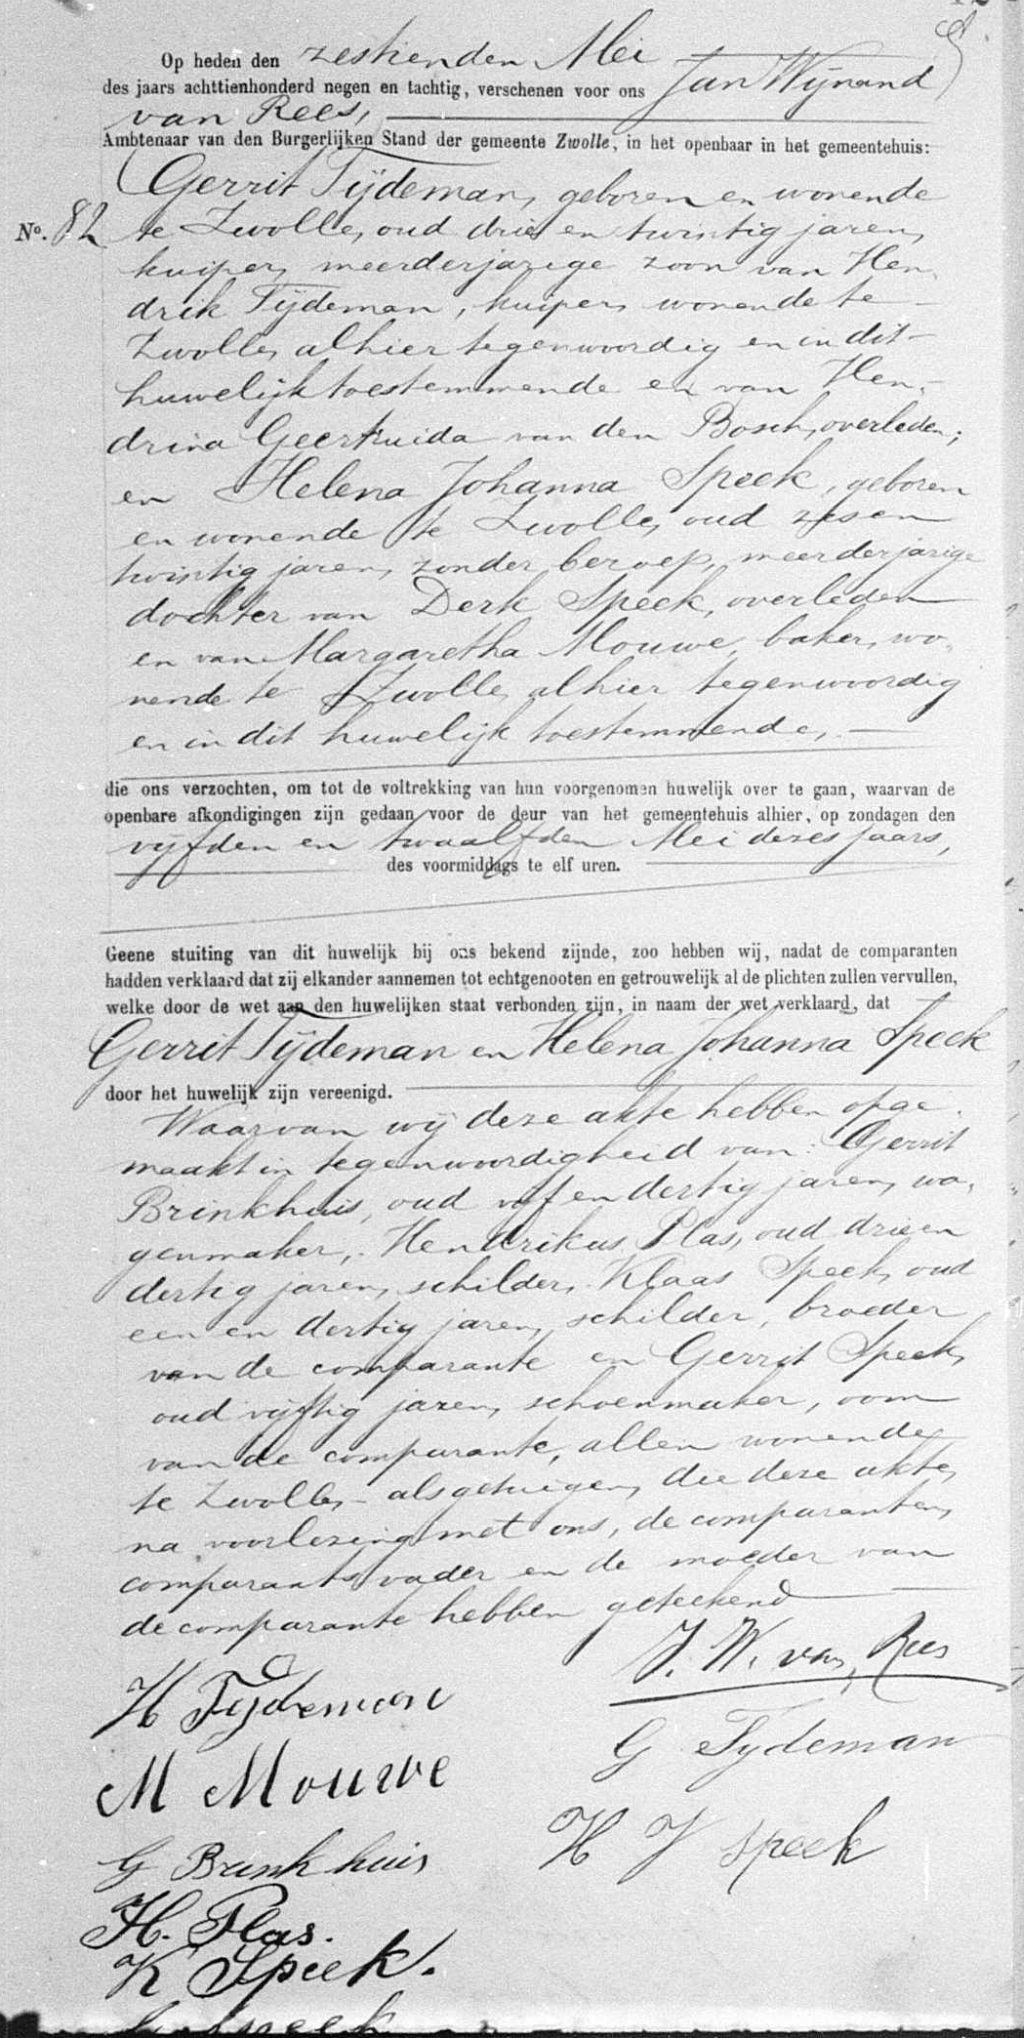 Op heden den zestienden Mei
des jaars achttienhonderd negen en tachtig, verschenen voor ons Jan Wijnand
van Rees,
Ambtenaar van den Burgerlijken Stand der gemeente Zwolle, in het openbaar in het gemeentehuis:
Gerrit Tijdeman, geboren en wonende
No. 82 te Zwolle, oud drie en twintig jaren,
kuiper, meerderjarige zoon van Hen-
drik Tijdeman, kuiper, wonende te
Zwolle, alhier tegenwoordig en in dit
huwelijk toestemmende en van Hen-
drina Geertruida van den Bosch, overleden;
en Helena Johanna Speek, geboren
en wonende te Zwolle, oud zes en
twintig jaren, zonder beroep, meerderjarige
dochter van Derk Speek, overleden
en van Margaretha Mouwe, baker, wo-
nende te Zwolle, alhier tegenwoordig
en in dit huwelijk toestemmende,
die ons verzochten, om tot de voltrekking van hun voorgenomen huwelijk over te gaan, waarvan de
openbare afkondigingen zijn gedaan voor de deur van het gemeentehuis alhier, op zondagen den
vijfden en twaalfden Mei dezes jaars,
des voormiddags te elf uren.
Geene stuiting van dit huwelijk bij ons bekend zijnde, zoo hebben wij, nadat de comparanten
hadden verklaard dat zij elkander aannemen tot echtgenooten en getrouwelijk al de plichten zullen vervullen,
welke door de wet aan den huwelijken staat verbonden zijn, in naam der wet verklaard, dat
Gerrit Tijdeman en Helena Johanna Speek
door het huwelijk zijn vereenigd.
Waarvan wij deze akte hebben opge-
maakt in tegenwoordigheid van: Gerrit
Brinkhuis, oud vijf en dertig jaren, wa-
genmaker, Hendrikus Plas, oud drie en
dertig jaren, schilder, Klaas Speek, oud
een en dertig jaren, schilder, broeder
van de comparante en Gerrit Speek,
oud vijftig jaren, schoenmaker, oom
van de comparante, allen wonende
te Zwolle, als getuigen, die deze akte,
na voorlezing met ons, de comparanten,
comparants vader en de moeder van
de comparante hebben geteekend
J. W. van Rees
H Tijdeman
G Tydeman
M Mouwe
H J Speek
G Brinkhuis
H. Plas.
K Speek.
G Speek